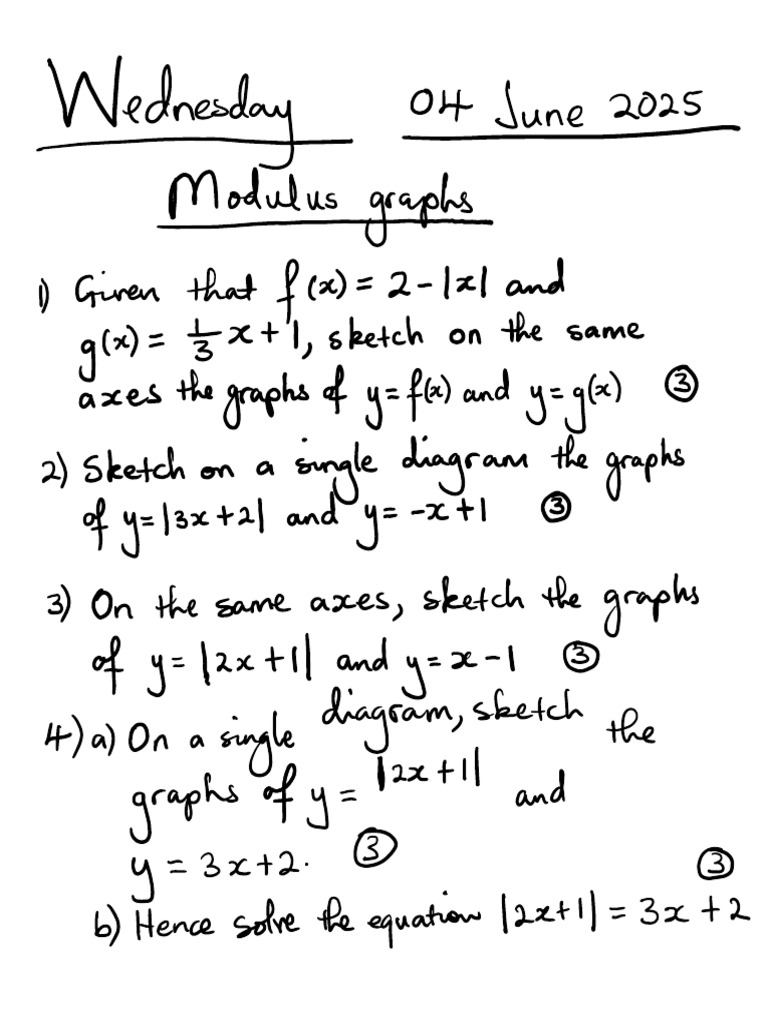 Wednesday 04 June 2025
Modulus graphs
1) Given that f(x) = 2 - |x| and
g(x) = 1/3 x + 1, sketch on the same
axes the graphs of y = f(x) and y = g(x) ③
2) Sketch on a single diagram the graphs
of y = |3x + 2| and y = -x + 1 ③
3) On the same axes, sketch the graphs
of y = |2x + 1| and y = x - 1 ③
4) a) On a single diagram, sketch the
graphs of y = |2x + 1| and
y = 3x + 2. ③
③
b) Hence solve the equation |2x + 1| = 3x + 2